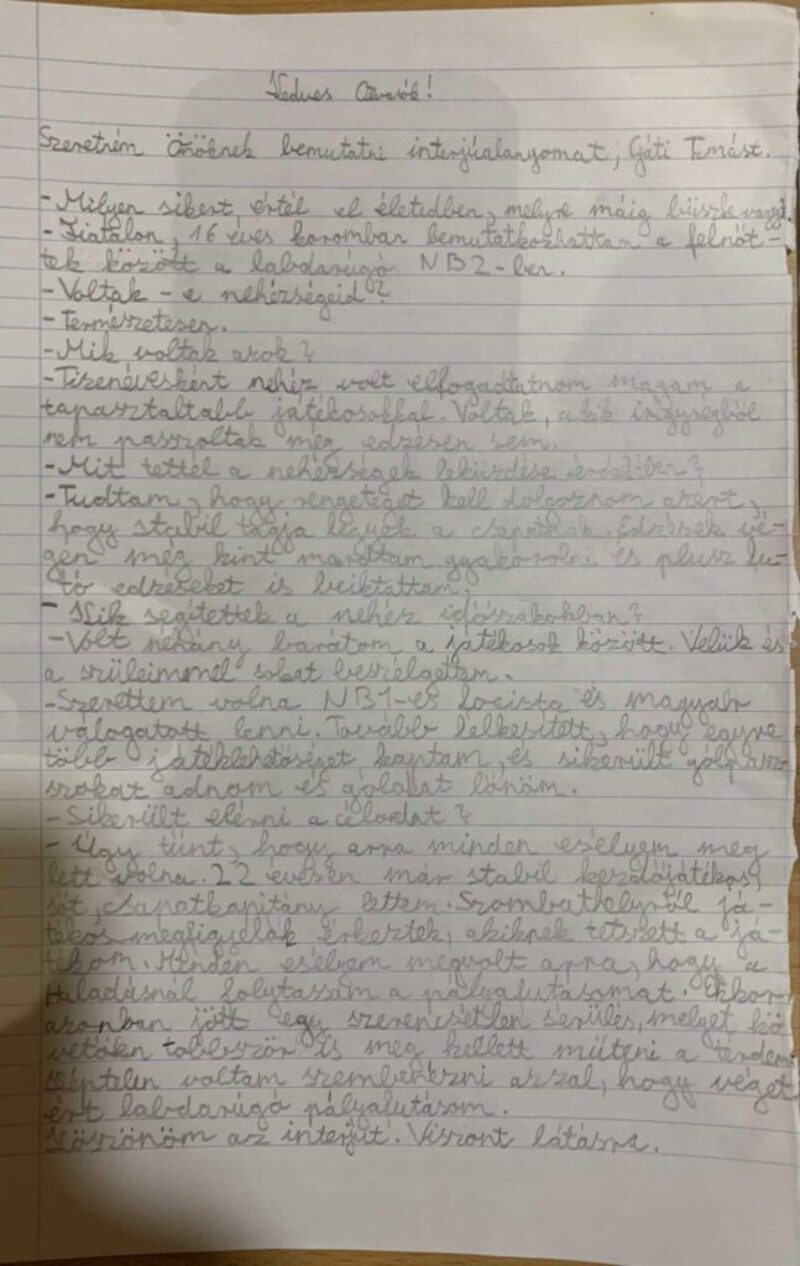 Kedves Olvasók!
Szeretném Önöknek bemutatni interjúalanyomat, Gáti Tamást.
- Milyen sikert értél el életedben, melyre máig büszke vagy?
- Fiatalon, 16 éves koromban bemutatkozhattam a felnőt-
tek között a labdarúgó NB2-ben.
- Voltak - e nehézségeid?
- Természetesen.
- Mik voltak azok?
- Tizenévesként nehéz volt elfogadtatnom magam a
tapasztaltabb játékosokkal. Voltak, a kik irigységből
nem passzoltak még edzésen sem.
- Mit tettél a nehézségek leküzdése érdekében?
- Tudtam, hogy rengeteget kell dolgoznom azért,
hogy stabil tagja legyek a csapatnak. Edzések vé-
gén még kint maradtam gyakorolni és plusz fu-
tó edzéseket is beiktattam.
- Kik segítettek a nehéz időszakokban?
- Volt néhány barátom a játékosok között. Velük és
a szüleimmel sokat beszélgettem.
- Szerettem volna NB1-es focista és magyar
válogatott lenni. Tovább lelkesített, hogy egyre
több játéklehetőséget kaptam, és sikerült gólpasz
szokat adnom és gólokat lőnöm.
- Sikerült elérni a célodat?
- Úgy tűnt, hogy arra minden esélyem meg
lett volna. 22 évesen már stabil kezdőjátékos,
sőt, csapatkapitány lettem. Szombathelyről já-
tékos megfigyelők érkeztek, akiknek tetszett a já-
tékom. Minden esélyem megvolt arra, hogy a
Haladásnál folytassam a pályafutásomat. Ekkor
azonban jött egy szerencsétlen sérülés, melyet kö
vetően többször is meg kellett műteni a térdem
képtelen voltam szembenézni azzal, hogy véget
ért labdarúgó pályafutásom.
Köszönöm az interjút. Viszont látásra.